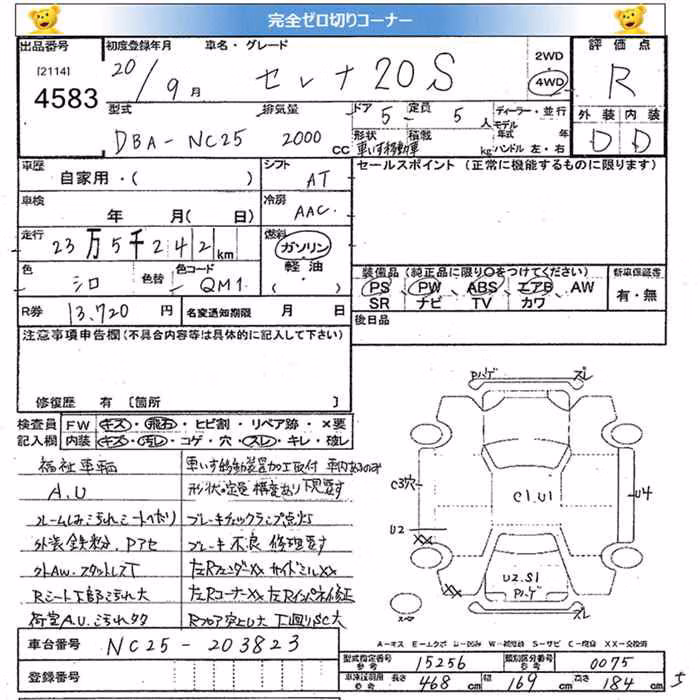 完全ゼロ切りコーナー
出品番号 初度登録年月 車名・グレード 評価点
[2114] 20/9月 セレナ 20S 2WD 4WD R
4583
型式 排気量 ドア 5 定員 5人 ディーラー・並行 外装 内装
モデル年式 年
DBA-NC25 2000cc 形状 車いす移動車 積載 kg ハンドル 左・右 D D
車歴 シフト セールスポイント (正常に機能するものに限ります)
自家用・( ) AT
車検 冷房
年 月( 日) AAC
走行 燃料
23万5千242km ガソリン
色 シロ 色替 色コード QM1 軽油 ( )
装備品 (純正品に限り○をつけてください) 新車保証書
PS PW ABS エアB AW 有・無
SR ナビ TV カワ
R券 13,720円 名変通知期限 月 日 後日品
注意事項申告欄 (不具合内容等は具体的に記入して下さい)
修復歴 有 [箇所 ]
検査員 FW キズ・飛石・ヒビ割・リペア跡・×要
記入欄 内装 キズ・汚レ・コゲ・穴・スレ・キレ・破レ
福祉車輌 車いす移動装置加工取付
A.U 形状・定員 構変あり
ルームしみこちれシートヘタリ ブレーキチェックランプ点灯
外装鉄粉、Pアセ ブレーキ不良 修理要す
外AW.スタットレス 左RフェンダXX サイドミルXX
Rシート下部こちれ大 左RコーナーXX 左Rインパネ修正
荷室A.U.こちれタタ Rフロア突上大 下廻りSC大
Pハゲ ズレ
C3穴 C1.U1 U4
U2
XX
XX U2.S1
Pハゲ ズレ
スペア
A-キズ E-エクボ U-凹み W-補修跡 S-サビ C-腐食 XX-交換済
車台番号 NC25-203823
登録番号
型式指定番号 参考 15256 類別区分番号 参考 0075
車検証用 参考 長さ 468cm 幅 169cm 高さ 184cm